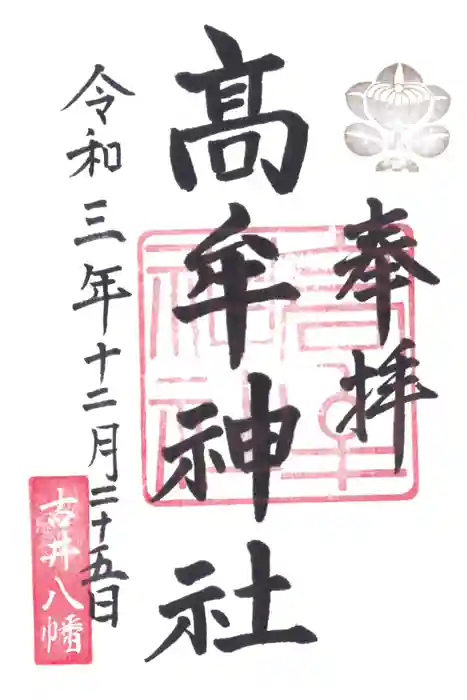 奉拝
髙牟神社
令和三年十二月二十五日
古井八幡
髙牟神社